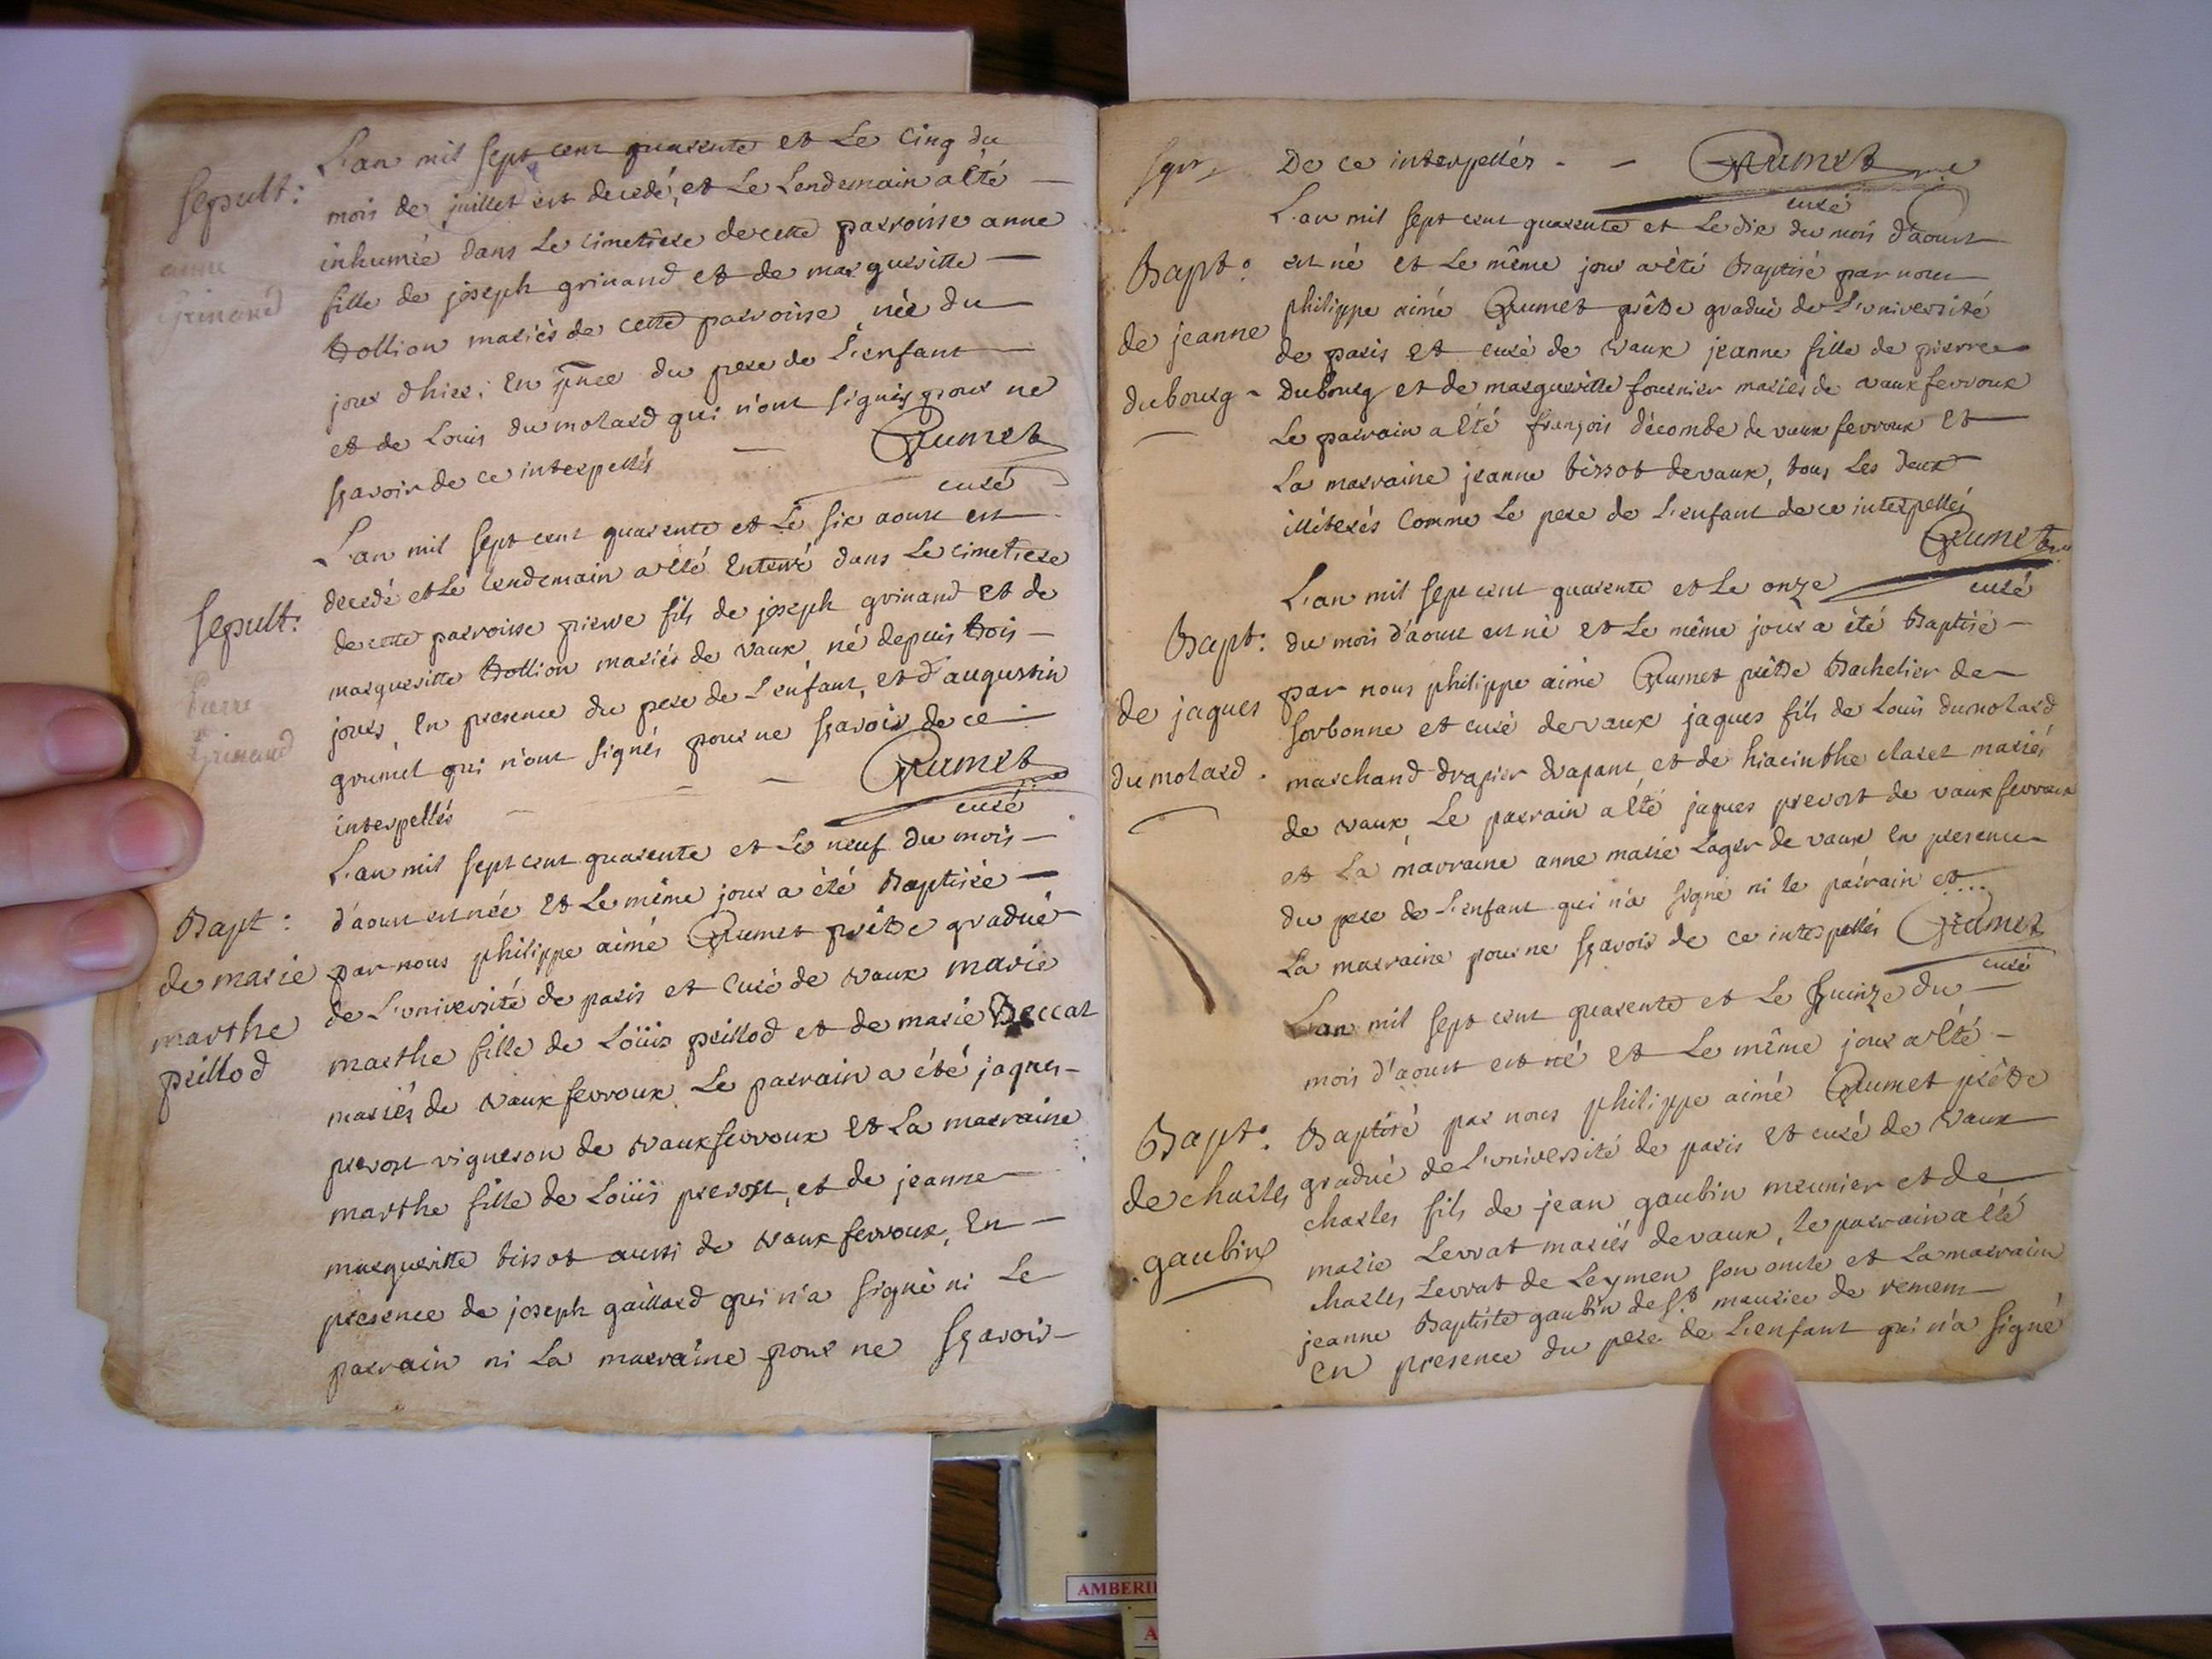 Sepult:
anne
Grinand
L'an mil sept cent quarente et Le Cinq du
mois de juillet est decedé, et Le Lendemain a été
inhumée dans Le Cimetiere de cette parroisse anne
fille de joseph grinand et de marguerite
trollion mariés de cette parroisse née du
jour d'hier; En pnce du pere de L'enfant
et de Louis dumolard qui n'ont signés pour ne
sçavoir de ce interpellés Grumet
curé
Sepult:
Pierre
Grinand
L'an mil sept cent quarente et Le six aoust est
decedé et Le Lendemain a été Enterré dans Le cimetiere
de cette parroisse pierre fils de joseph grinand et de
marguerite trollion mariés de vaux né depuis trois
jours, En presence du pere de L'enfant, et d'augustin
grumet qui n'ont signés pour ne sçavoir de ce
interpellés Grumet
curé
Bapt:
de marie
marthe
prillod
L'an mil sept cent quarente et Le neuf du mois
d'aoust est née et Le même jour a été Baptisée
par nous philippe aimé Grumet prêtre gradué
de L'université de paris et Curé de vaux marie
marthe fille de Loüis prillod et de marie Beccat
mariés de vaux fevroux Le parrain a été jaques
prevost vigneron de vaux fevroux Et La marraine
marthe fille de Loüis prevost, et de jeanne
marguerite tissot aussi de vaux fevroux, En
presence de joseph gaillard qui n'a signé ni Le
parrain ni La marraine pour ne sçavoir
De ce interpellés - - Grumet
curé
Bapt:
de jeanne
dubourg
L'an mil sept cent quarente et Le dix du mois d'aoust
est né et Le même jour a été Baptisé par nous
philippe aimé Grumet prêtre gradué de L'université
de paris et curé de vaux jeanne fille de pierre
Dubourg et de marguerite fournier mariés de vaux fevroux
Le parrain a été françois décombe de vaux fevroux Et
La marraine jeanne tissot de vaux, tous Les deux
illiterés Comme Le pere de L'enfant de ce interpellés
Grumet
curé
Bapt:
de jaques
dumolard.
L'an mil sept cent quarente et Le onze
du mois d'aoust est né et Le même jour a été Baptisé
par nous philippe aimé Grumet prêtre Bachelier de
sorbonne et curé de vaux jaques fils de Louis dumolard
marchand drapier drapant, et de hiacinthe claret mariés
de vaux, Le parrain a été jaques prevost de vaux fevroux
et La marraine anne marie Loger de vaux En presence
du pere de L'enfant qui n'a signé ni le parrain et...
La marraine pour ne sçavoir de ce interpellés Grumet
curé
Bapt:
de charles
gaubin
L'an mil sept cent quarente et Le Quinze du
mois d'aoust est né et Le même jour a été
Baptisé par nous philippe aimé Grumet prêtre
gradué de L'université de paris Et curé de vaux
charles fils de jean gaubin meunier et de
marie Levrat mariés de vaux, le parrain a été
charles Levrat de Leymen son oncle et La marraine
jeanne Baptiste gaubin de St. maurice de remens
en presence du pere de L'enfant qui n'a signé
AMBERI
A